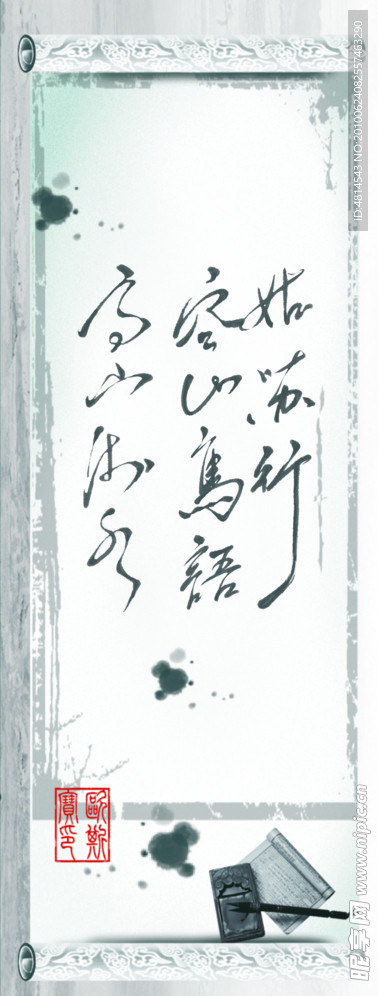 姑苏行
空山鳥語
高山流水
歐斯
寶印
ID:4814543 NO:20100624082557463290
昵享网 www.nipic.cn